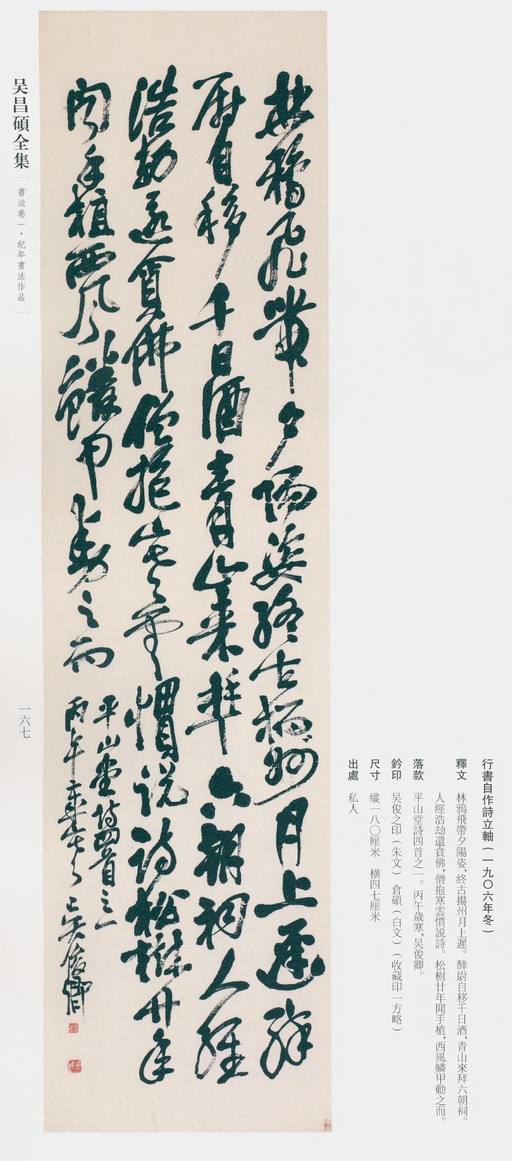 行書自作詩立軸（一九〇六年冬）
釋文　林鴉飛帶夕陽姿，終古揚州月上遲。醉尉自移千日酒，青山來拜六朝祠。
人經浩劫還貪佛，僧抱寒雲慣説詩。松樹廿年聞手植，西風鱗甲動之而。
落款　平山堂詩四首之一。丙午歲寒，吳俊卿。
鈐印　吳俊之印（朱文）　倉碩（白文）（收藏印一方略）
尺寸　縱一八〇厘米　橫四七厘米
出處　私人
林鴉飛帶夕陽姿終古揚州月上遲醉
尉自移千日酒青山來拜六朝祠人經
浩劫還貪佛僧抱寒雲慣説詩松樹廿年
聞手植西風鱗甲動之而
平山堂詩四首之一
丙午歲寒吳俊卿
吴昌碩全集
書法卷一·紀年書法作品
一六七